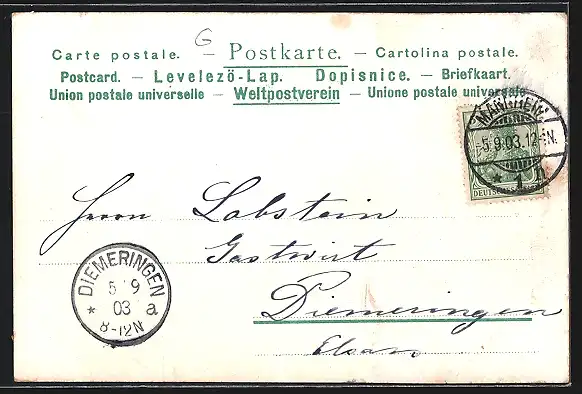 G
Carte postale. – Postkarte. – Cartolina postale.
Postcard. – Levelező-Lap. Dopisnice. – Briefkaart.
Union postale universelle – Weltpostverein – Unione postale universale
MANNHEIM
-5.9.03.12-1N.
* 1
DEUTSCHES
Herrn Labstein
Gastwirt
Diemeringen
Elsass
DIEMERINGEN
5 9
03 a
*
8-12N